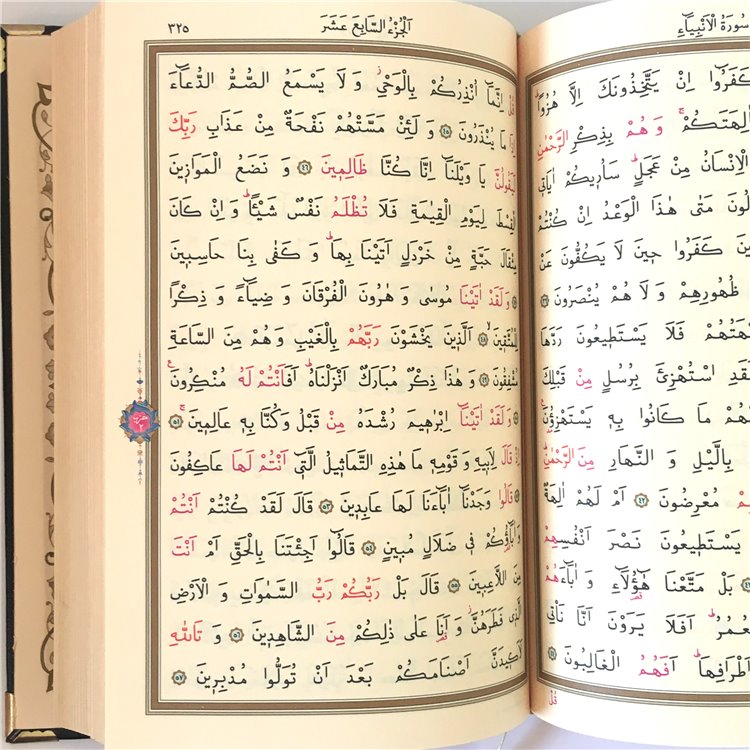 سُورَةُ الْاَنْبِيَاءِ
كَفَرُوا اِنْ يَتَّخِذُونَكَ اِلَّا هُزُوًا
اٰلِهَتَكُمْ وَهُمْ بِذِكْرِ الرَّحْمٰنِ
الْاِنْسَانُ مِنْ عَجَلٍ سَاُر۪يكُمْ اٰيَات۪ي
مَتٰى هٰذَا الْوَعْدُ اِنْ كُنْتُمْ
كَفَرُوا ح۪ينَ لَا يَكُفُّونَ عَنْ
ظُهُورِهِمْ وَلَا هُمْ يُنْصَرُونَ ﴿٣٩﴾
فَلَا يَسْتَط۪يعُونَ رَدَّهَا
اسْتُهْزِئَ بِرُسُلٍ مِنْ قَبْلِكَ
مَا كَانُوا بِه۪ يَسْتَهْزِؤُ۫نَ
بِالَّيْلِ وَالنَّهَارِ مِنَ الرَّحْمٰنِ
مُعْرِضُونَ ﴿٤٢﴾ اَمْ لَهُمْ اٰلِهَةٌ
يَسْتَط۪يعُونَ نَصْرَ اَنْفُسِهِمْ
بَلْ مَتَّعْنَا هٰٓؤُ۬لَاءِ وَاٰبَاءَهُمْ
الْعُمُرُ اَفَلَا يَرَوْنَ اَنَّا نَأْت۪ي
اَطْرَافِهَا اَفَهُمُ الْغَالِبُونَ ﴿٤٤﴾
قُلْ
اَلْجُزْءُ السَّابِعَ عَشَرَ
٣٢٥
قُلْ اِنَّمَا اُنْذِرُكُمْ بِالْوَحْيِ وَلَا يَسْمَعُ الصُّمُّ الدُّعَاءَ
اِذَا مَا يُنْذَرُونَ ﴿٤٥﴾ وَلَئِنْ مَسَّتْهُمْ نَفْحَةٌ مِنْ عَذَابِ رَبِّكَ
لَيَقُولُنَّ يَا وَيْلَنَا اِنَّا كُنَّا ظَالِم۪ينَ ﴿٤٦﴾ وَنَضَعُ الْمَوَاز۪ينَ
الْقِسْطَ لِيَوْمِ الْقِيٰمَةِ فَلَا تُظْلَمُ نَفْسٌ شَيْـًٔا وَاِنْ كَانَ
مِثْقَالَ حَبَّةٍ مِنْ خَرْدَلٍ اَتَيْنَا بِهَا وَكَفٰى بِنَا حَاسِب۪ينَ
﴿٤٧﴾ وَلَقَدْ اٰتَيْنَا مُوسٰى وَهٰرُونَ الْفُرْقَانَ وَضِيَاءً وَذِكْرًا
لِلْمُتَّق۪ينَ ﴿٤٨﴾ اَلَّذ۪ينَ يَخْشَوْنَ رَبَّهُمْ بِالْغَيْبِ وَهُمْ مِنَ السَّاعَةِ
مُشْفِقُونَ ﴿٤٩﴾ وَهٰذَا ذِكْرٌ مُبَارَكٌ اَنْزَلْنَاهُ اَفَاَنْتُمْ لَهُ مُنْكِرُونَ
﴿٥٠﴾ وَلَقَدْ اٰتَيْنَا اِبْرٰه۪يمَ رُشْدَهُ مِنْ قَبْلُ وَكُنَّا بِه۪ عَالِم۪ينَ ﴿٥١﴾
اِذْ قَالَ لِاَب۪يهِ وَقَوْمِه۪ مَا هٰذِهِ التَّمَاث۪يلُ الَّت۪ي اَنْتُمْ لَهَا عَاكِفُونَ
﴿٥٢﴾ قَالُوا وَجَدْنَا اٰبَاءَنَا لَهَا عَابِد۪ينَ ﴿٥٣﴾ قَالَ لَقَدْ كُنْتُمْ اَنْتُمْ
وَاٰبَاؤُ۬كُمْ ف۪ي ضَلَالٍ مُب۪ينٍ ﴿٥٤﴾ قَالُوا اَجِئْتَنَا بِالْحَقِّ اَمْ اَنْتَ
مِنَ اللَّاعِب۪ينَ ﴿٥٥﴾ قَالَ بَلْ رَبُّكُمْ رَبُّ السَّمٰوَاتِ وَالْاَرْضِ
الَّذ۪ي فَطَرَهُنَّ وَاَنَا عَلٰى ذٰلِكُمْ مِنَ الشَّاهِد۪ينَ ﴿٥٦﴾ وَتَاللّٰهِ
لَاَك۪يدَنَّ اَصْنَامَكُمْ بَعْدَ اَنْ تُوَلُّوا مُدْبِر۪ينَ ﴿٥٧﴾